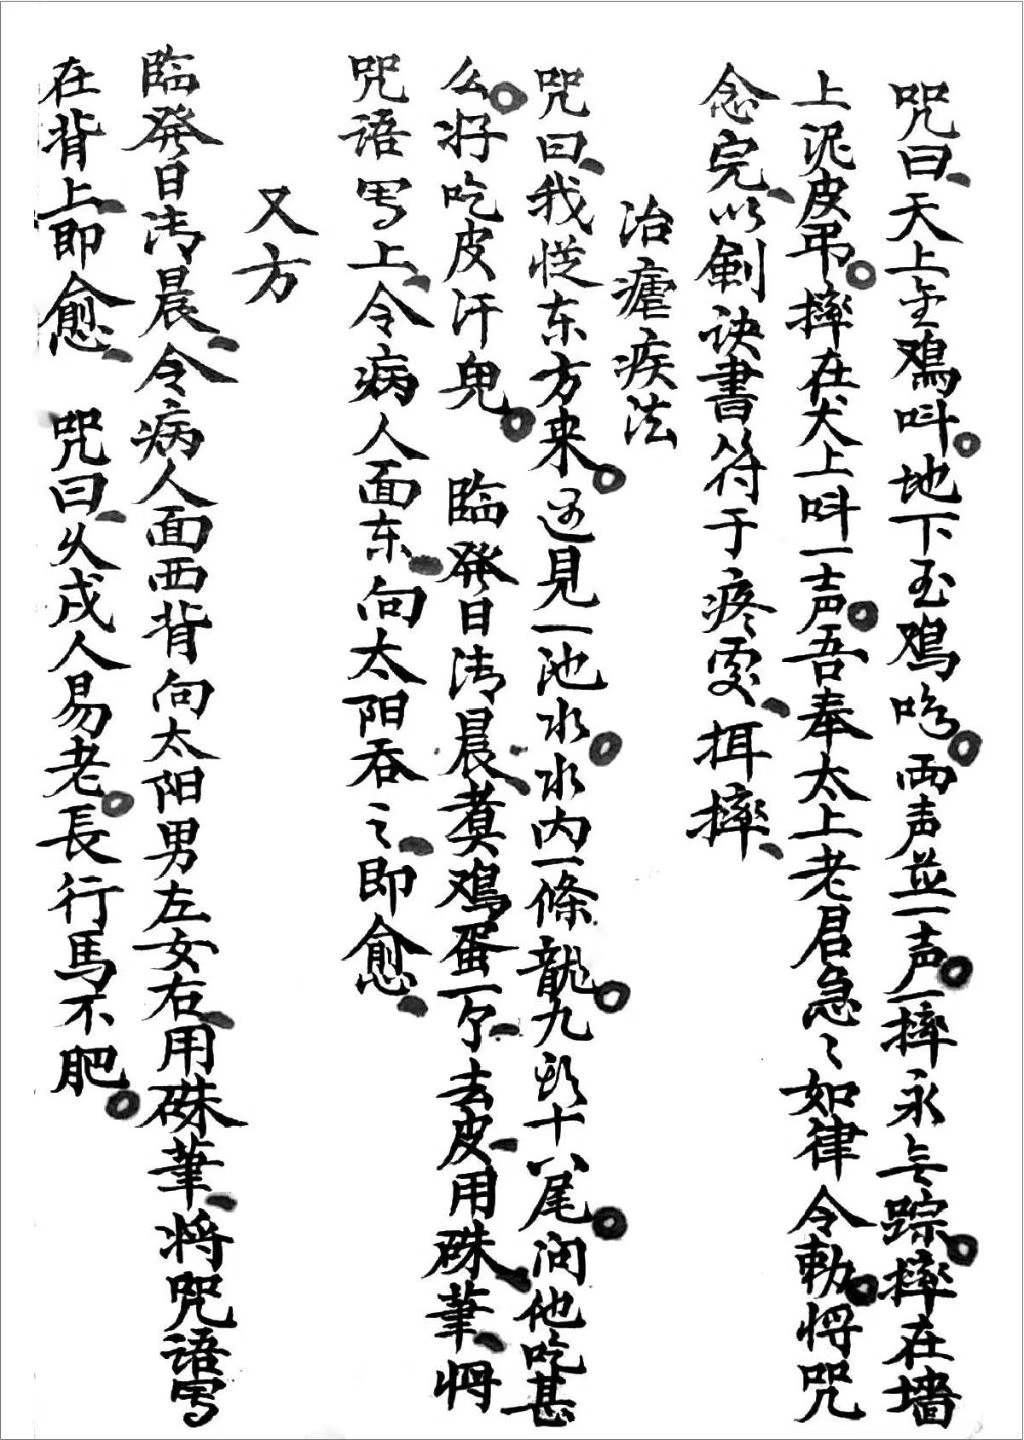 咒曰、天上金鸡叫。地下玉鸡吟。两声並一声。一摔永无踪。摔在墙
上泥皮吊。摔在犬上叫一声。吾奉太上老君急々如律令勅。将咒
念完、以剑诀書符于疼处、揖摔、
治瘧疾法
咒曰、我从东方来。遇見一池水。水内一條龍。九头十八尾。问他吃甚
么。好吃皮汗鬼。 臨發日清晨、煮鸡蛋一个、去皮、用硃筆、将
咒语写上、令病人面东、向太阳吞之、即愈、
又方
臨發日清晨、令病人面西背向太阳男左女右、用硃筆、将咒语写
在背上、即愈、 咒曰、久戍人易老。長行馬不肥。